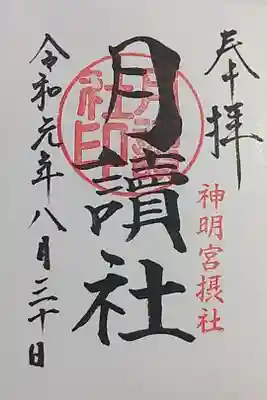 奉拝
神明宮摂社
月讀社
令和元年八月三十日